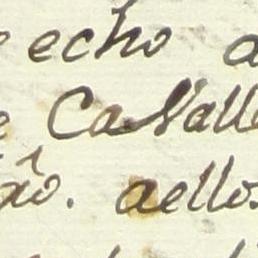 echo a
Cavalle
ão. aellos